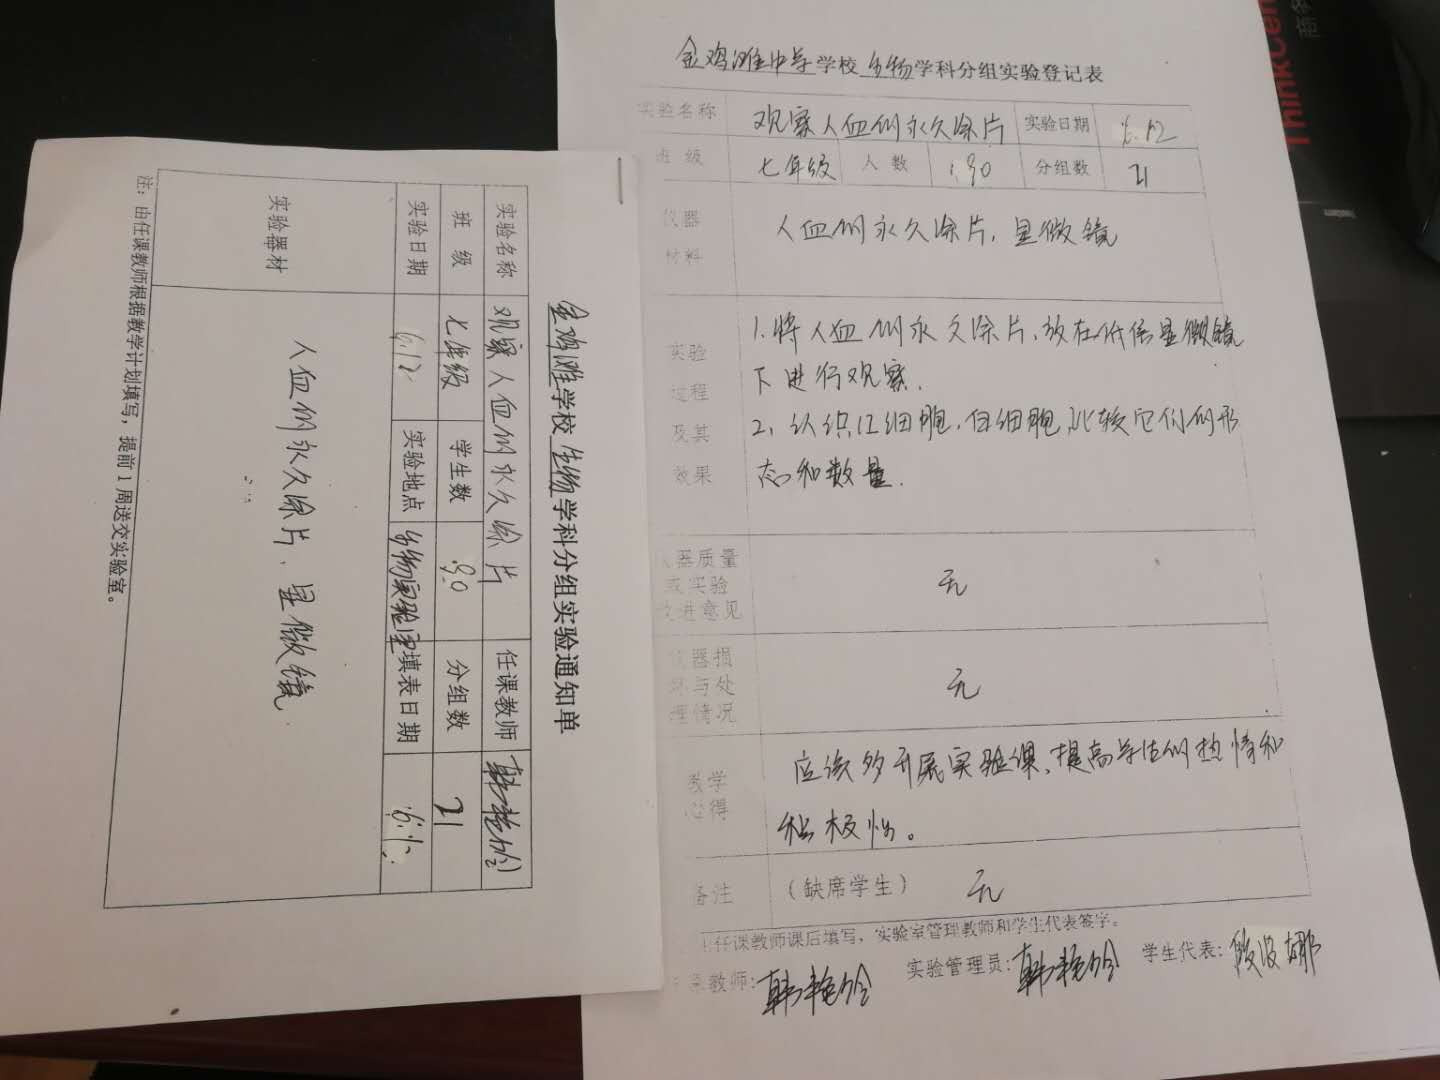 金鸡滩学校 生物学科分组实验通知单
实验名称 观察人血的永久涂片 任课教师 韩艳伶
班 级 七年级 学生数 90 分组数 21
实验日期 6.12 实验地点 生物实验室 填表日期
实验器材 人血的永久涂片、显微镜
注:由任课教师根据教学计划填写,提前1周送交实验室。
金鸡滩中学学校 生物学科分组实验登记表
实验名称 观察人血的永久涂片 实验日期 6.12
班 级 七年级 人 数 90 分组数 21
仪器
材料
人血的永久涂片、显微镜
实验
过程
及其
效果
1.将人血的永久涂片,放在低倍显微镜
下进行观察.
2、认识红细胞,白细胞,比较它们的形
态和数量.
器质量
或实验
改进意见
无
器损
坏与处
理情况
无
教学
心得
应该多开展实验课、提高学生的热情和
积极性。
备注 (缺席学生) 无
任课教师课后填写,实验室管理教师和学生代表签字。
教师: 韩艳伶 实验管理员: 韩艳伶 学生代表:
ThinkCen
商务